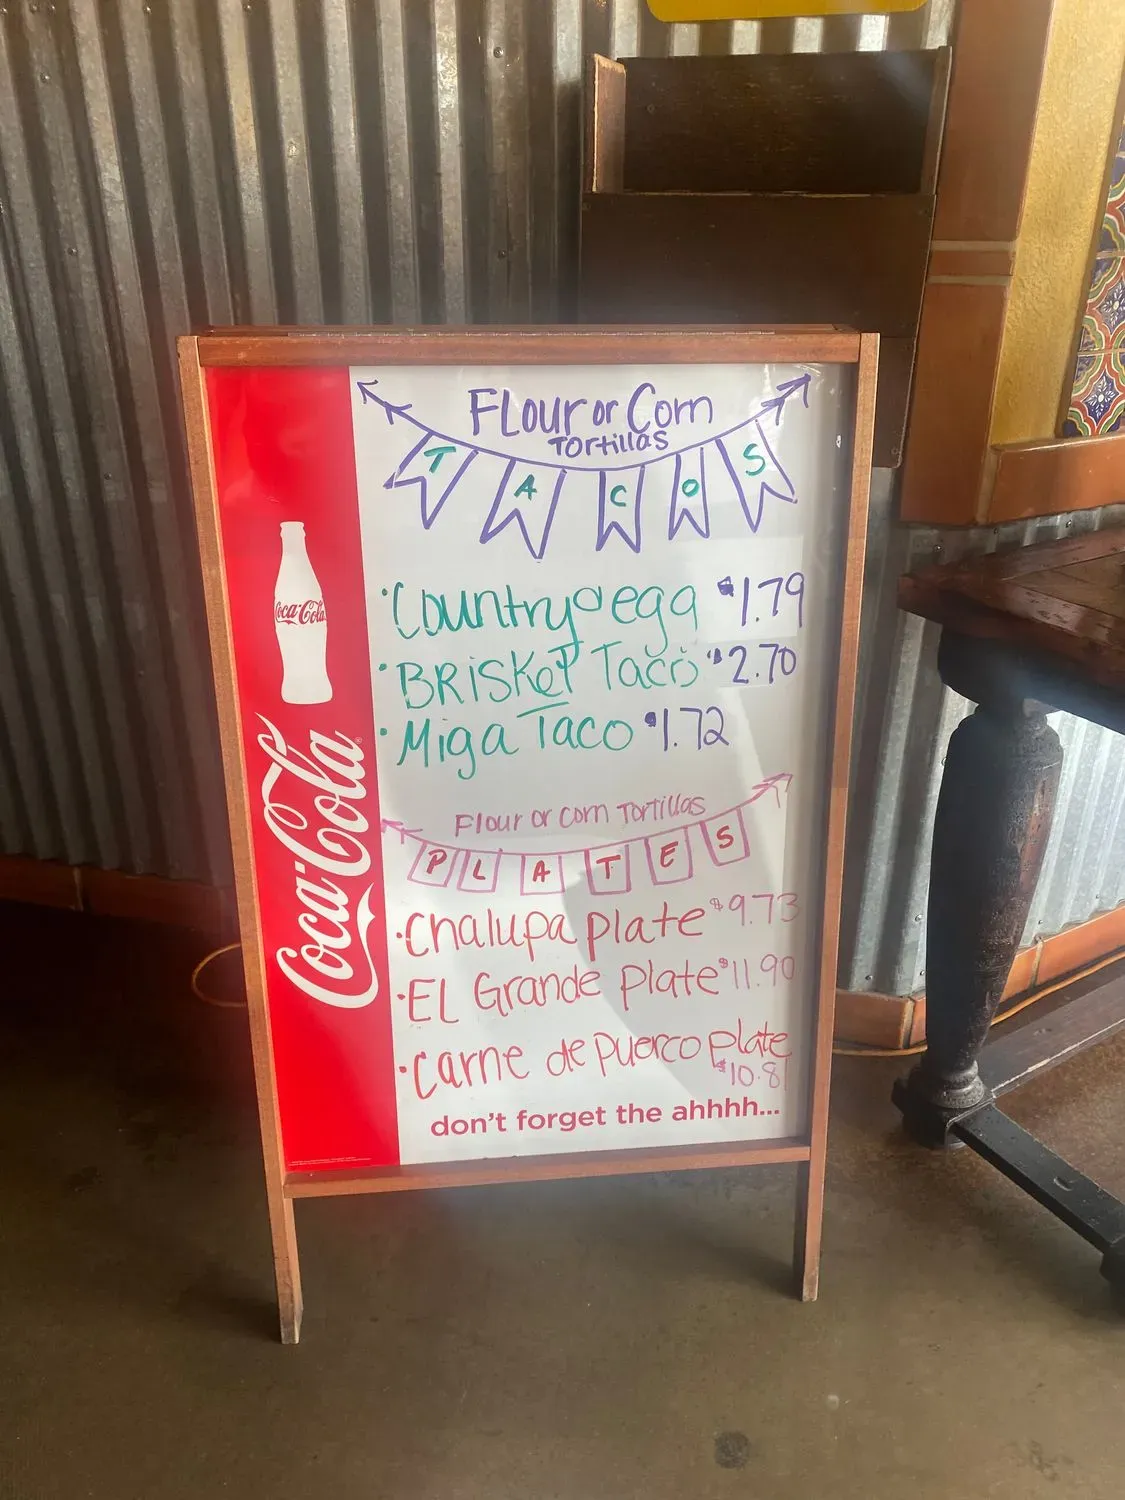 FLour or Corn
Tortillas
TACOS
• Country & egg $1.79
• BRISKET Taco $2.70
• Miga Taco $1.72
Flour or corn Tortillas
PLATES
• Chalupa plate $9.73
• EL Grande Plate $11.90
• Carne de Puerco plate
$10.81
don't forget the ahhhh...
Coca-Cola
Coca-Cola®